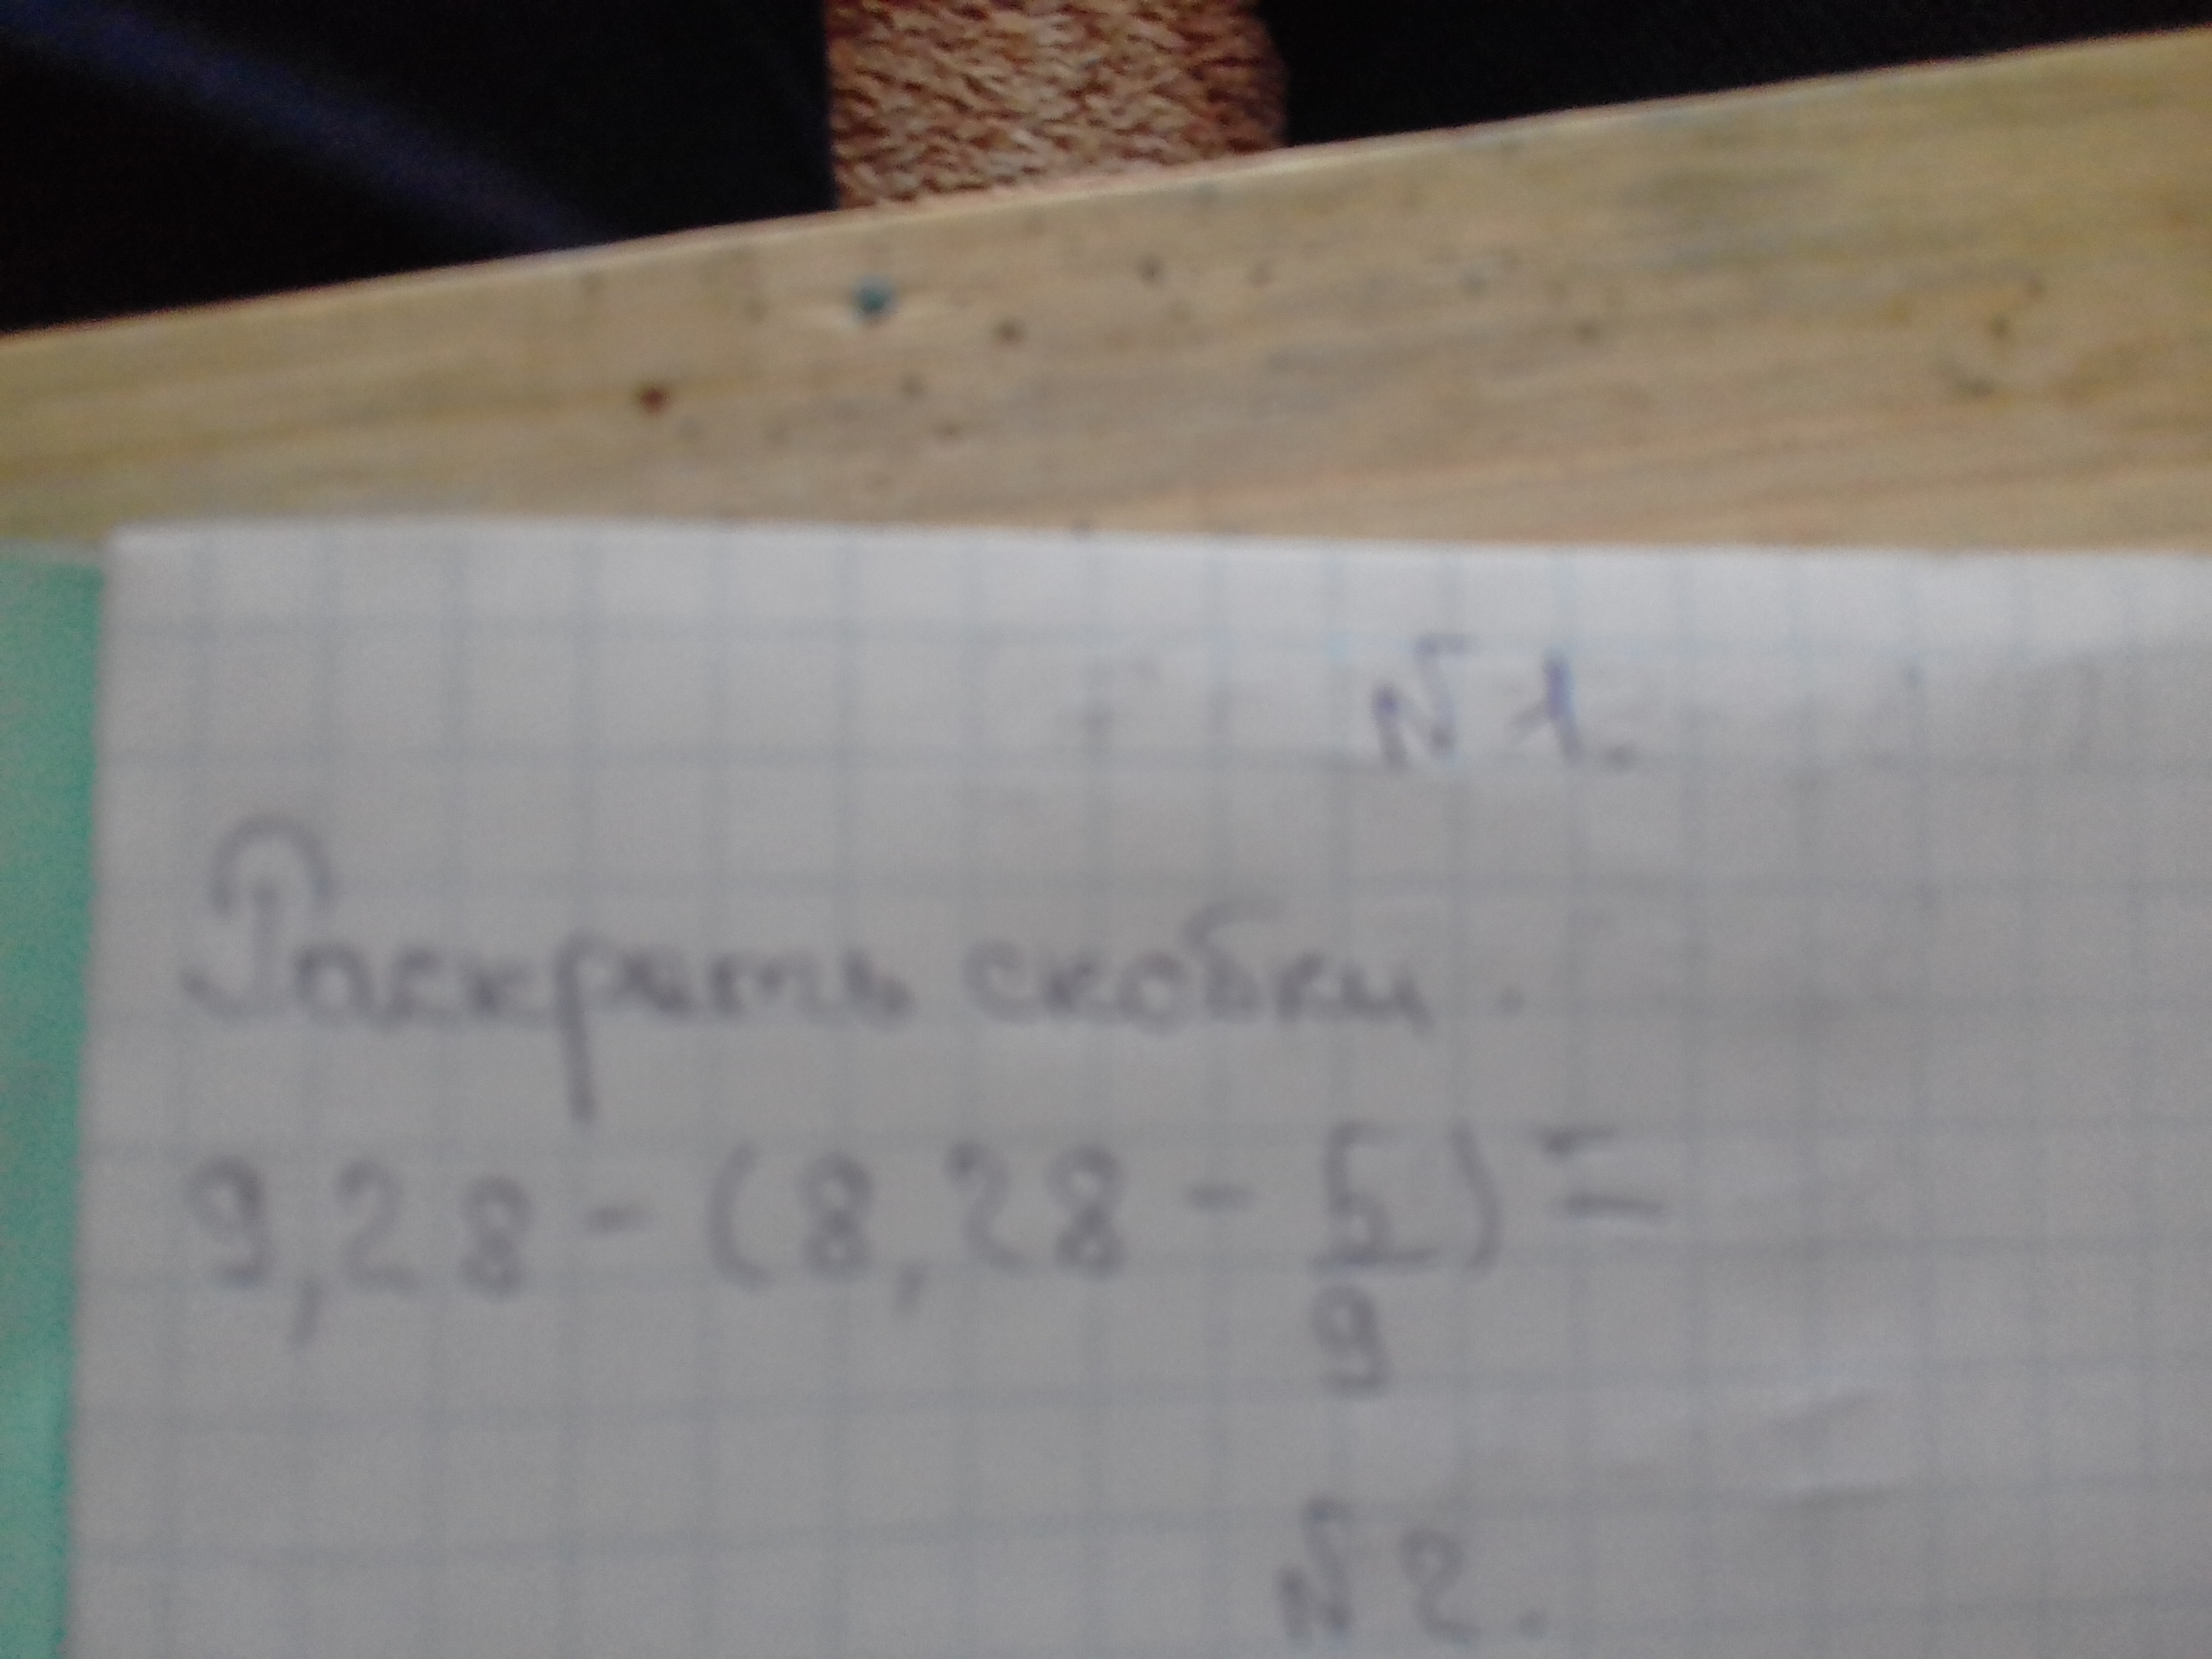 №1.
Раскрыть скобки.
9,28-(8,28-5/9)=
№2.